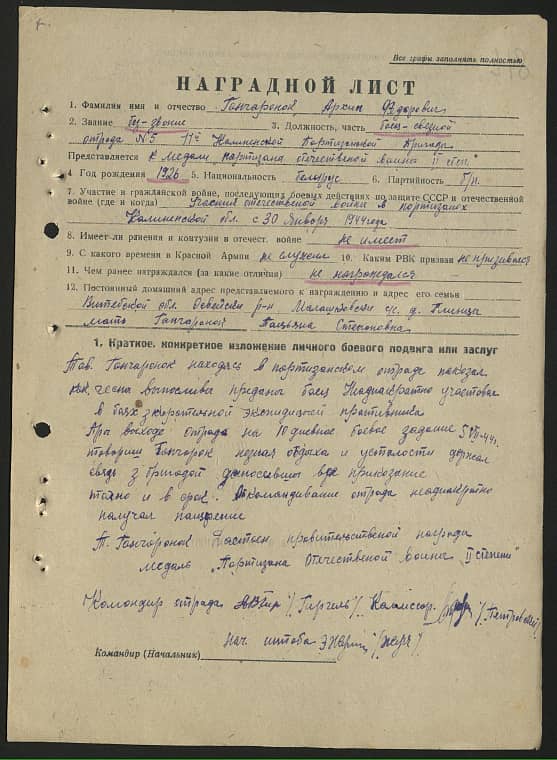 Все графы заполнять полностью
НАГРАДНОЙ ЛИСТ
1. Фамилия имя и отчество Гончаронок Архип Фёдорович
2. Звание без-звание 3. Должность, часть боец-связной
отряда №5 11й Калиненской Партизанской Бригады
Представляется к медали, партизана отечественной войны II степ."
4. Год рождения 1926 5. Национальность белорус 6. Партийность б/п.
7. Участие в гражданской войне, последующих боевых действиях по защите СССР и отечественной
войне (где и когда) Участник отечественной войны в партизанах
Калиненской обл. с 30 Января 1944 года
8. Имеет-ли ранения и контузии в отечест. войне не имеет
9. С какого времени в Красной Армии не служил 10. Каким РВК призван не призывался
11. Чем ранее награждался (за какие отличия) не награждался
12. Постоянный домашний адрес представляемого к награждению и адрес его семьи
Витебской обл. Освейский р-н Малашковский с/с. д.
мать Гончаронок Татьяна Степановна
1. Краткое, конкретное изложение личного боевого подвига или заслуг
Тов. Гончаронок находясь в партизанском отряде показал
как боец Неоднакратно участвовал
в боях з экспидицией противника
При выходе отряда на 10 дневное боевое задание
товарищ Гончарок незная отдыха и усталости держал
связь з бригадой приказание
точно и в срок. отряда неоднакратно
получал
Т. Гончаронок Достоен правительственой награды
медаль „Партизана Отечественой войны II степени"
Командир отряда / Комиссар / Петровский
Нач. штоба
Командир (Начальник)